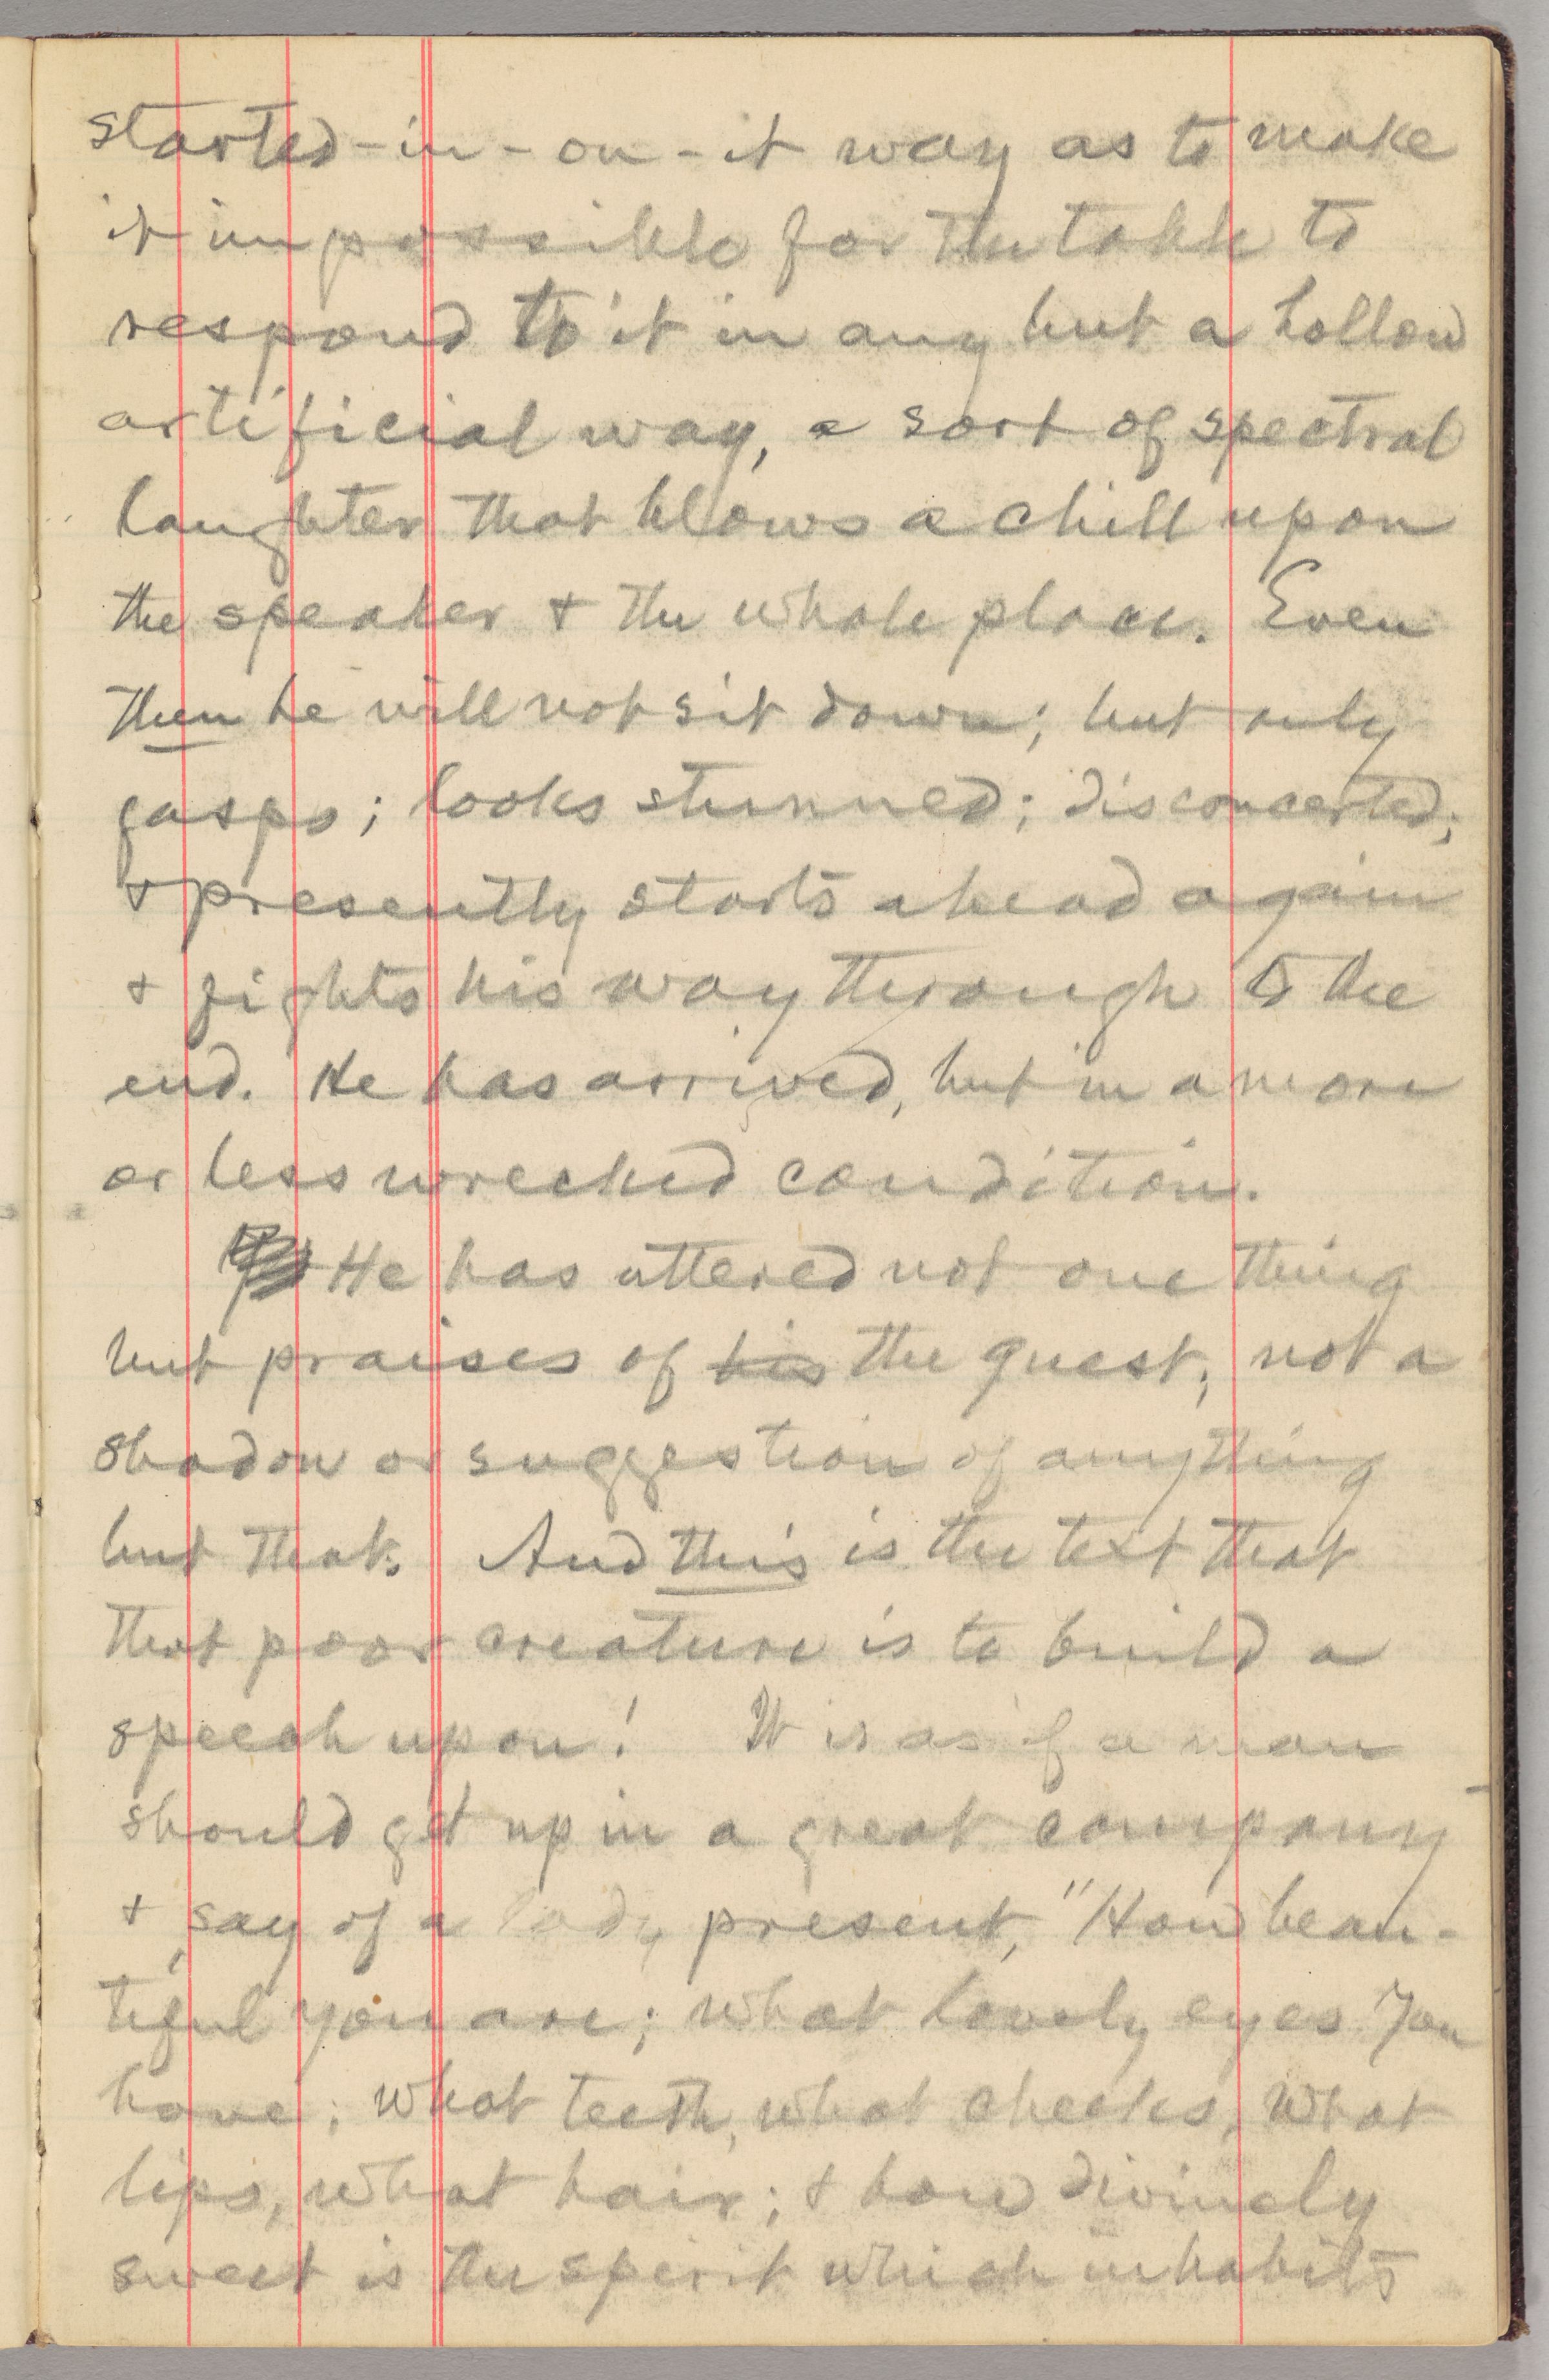 started-in-on-it way as to make
it impossible for the table to
respond to it in any but a hollow
artificial way, a sort of spectral
laughter that blows a chill upon
the speaker & the whole place. Even
then he will not sit down; but only
gasps; looks stunned; disconcerted;
& presently starts ahead again
& fights his way through to the
end. He has arrived, but in a more
or less wrecked condition.
He has uttered not one thing
but praises of his the guest; not a
shadow or suggestion of anything
but that. And this is the text that
that poor creature is to build a
speech upon! It is as if a man
should get up in a great company
& say of a lady present, "How beau-
tiful you are; what lovely eyes you
have; what teeth, what cheeks, what
lips, what hair; & how divinely
sweet is the spirit which inhabits